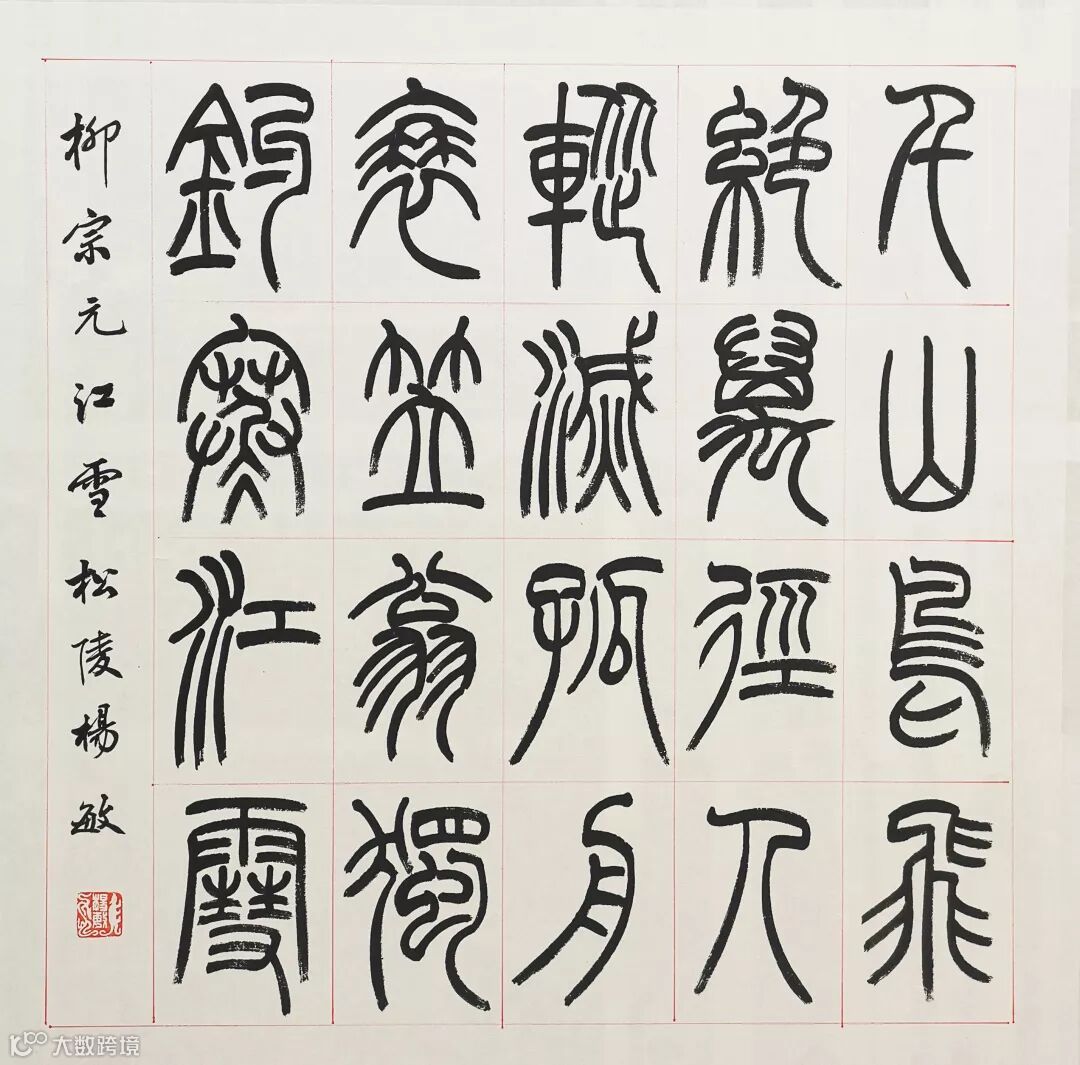 千山鳥飛
絕萬徑人
蹤滅孤舟
衰笠翁獨
釣寒江雪
柳宗元江雪松陵楊敏
大数跨境